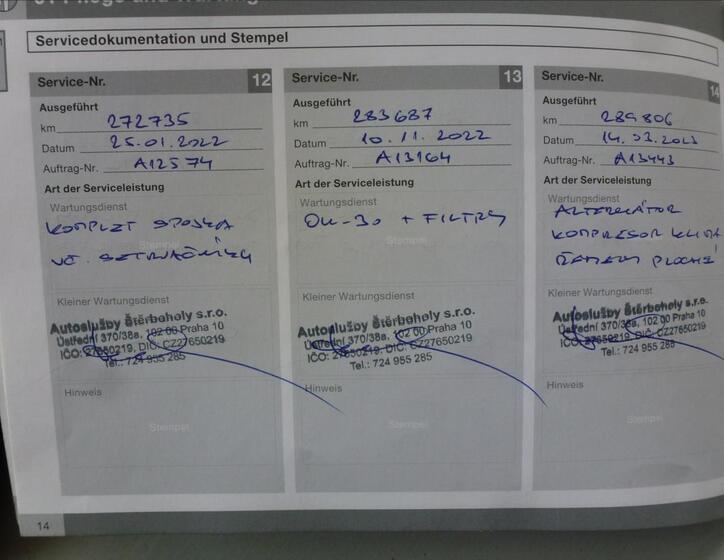 Servicedokumentation und Stempel
Service-Nr. 12
Ausgeführt
km 272735
Datum 25.01.2022
Auftrag-Nr. A12574
Art der Serviceleistung
Wartungsdienst
KOMPLET SPOJKA
Stempel
VČ. SETRVAČNÍKU
Kleiner Wartungsdienst
Autoslužby Štěrboholy s.r.o.
Ústřední 370/38a, 102 00 Praha 10
IČO: 27650219, DIČ: CZ27650219
Tel.: 724 955 285
Hinweis
Stempel
Service-Nr. 13
Ausgeführt
km 283687
Datum 10.11.2022
Auftrag-Nr. A13164
Art der Serviceleistung
Wartungsdienst
0W-30 + FILTRY
Stempel
Kleiner Wartungsdienst
Autoslužby Štěrboholy s.r.o.
Ústřední 370/38a, 102 00 Praha 10
IČO: 27650219, DIČ: CZ27650219
Tel.: 724 955 285
Hinweis
Stempel
Service-Nr. 14
Ausgeführt
km 289806
Datum 14.03.2023
Auftrag-Nr. A13443
Art der Serviceleistung
Wartungsdienst
ALTERNÁTOR
KOMPRESOR KLIMA
ŘEMENY PLOCHÉ
Kleiner Wartungsdienst
Autoslužby Štěrboholy s.r.o.
Ústřední 370/38a, 102 00 Praha 10
IČO: 27650219, DIČ: CZ27650219
Tel.: 724 955 285
Hinweis
Stempel
14